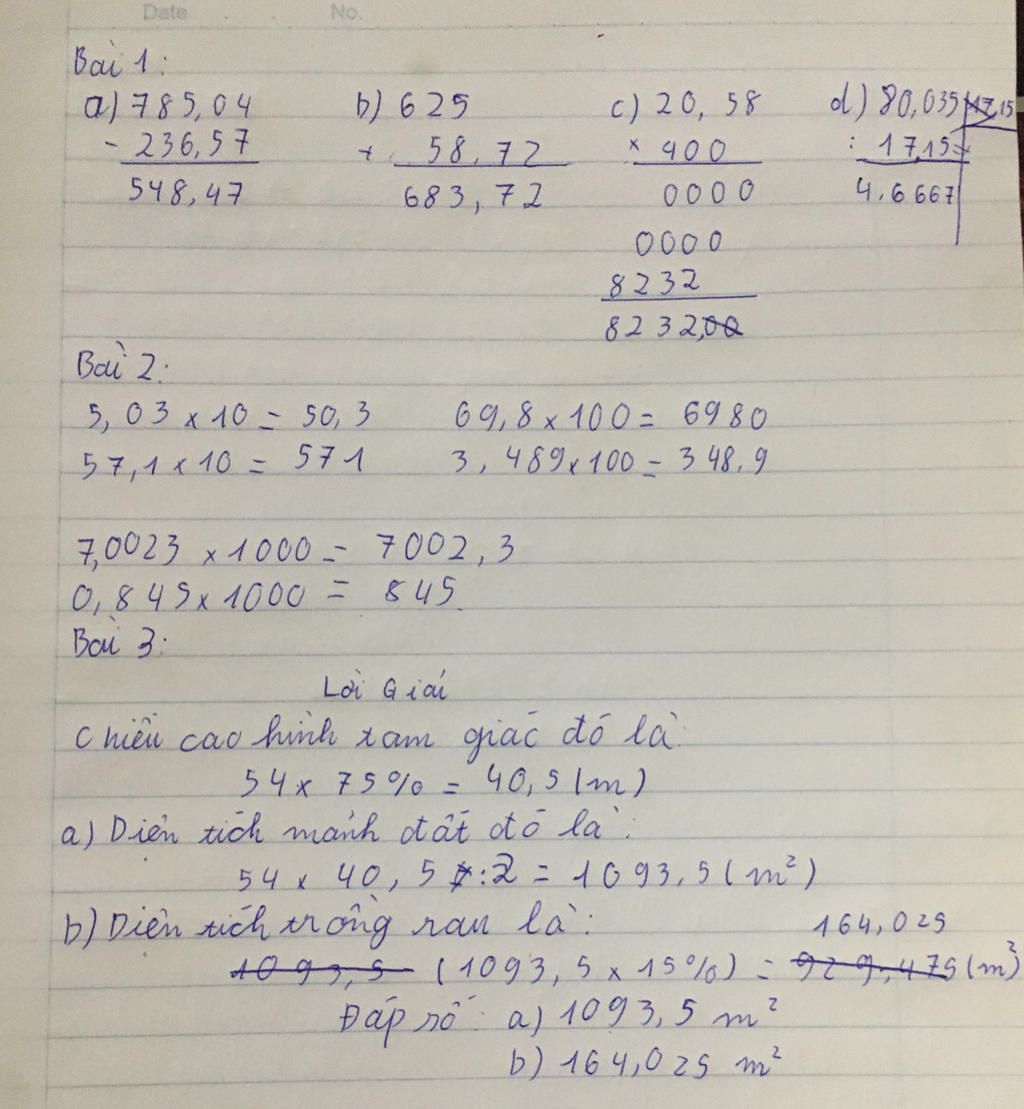 Date No.
Bài 1:
a) 785,04 b) 625 c) 20,58 d) 80,035 17,15
- 236,57 + 58,72 × 400 : 17,15
548,47 683,72 0000 4,6667
0000
8232
8232,00
Bài 2:
5,03 × 10 = 50,3 69,8 × 100 = 6980
57,1 × 10 = 571 3,489 × 100 = 348,9
7,0023 × 1000 = 7002,3
0,845 × 1000 = 845
Bài 3:
Lời Giải
Chiều cao hình tam giác đó là:
54 × 75% = 40,5 (m)
a) Diện tích mảnh đất đó là:
54 × 40,5 : 2 = 1093,5 (m²)
b) Diện tích trồng rau là: 164,025
1093,5 (1093,5 × 15%) = 929,475 (m²)
Đáp số: a) 1093,5 m²
b) 164,025 m²